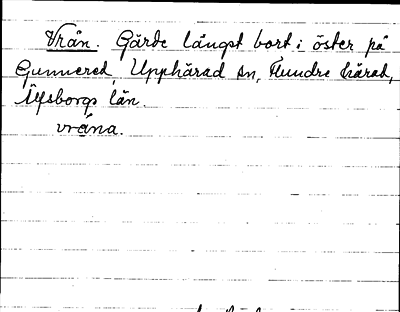 Vrån. Gärde längst bort i öster på
Gunnered, Upphärad sn, Flundre härad,
Älfsborgs län.
vråna.